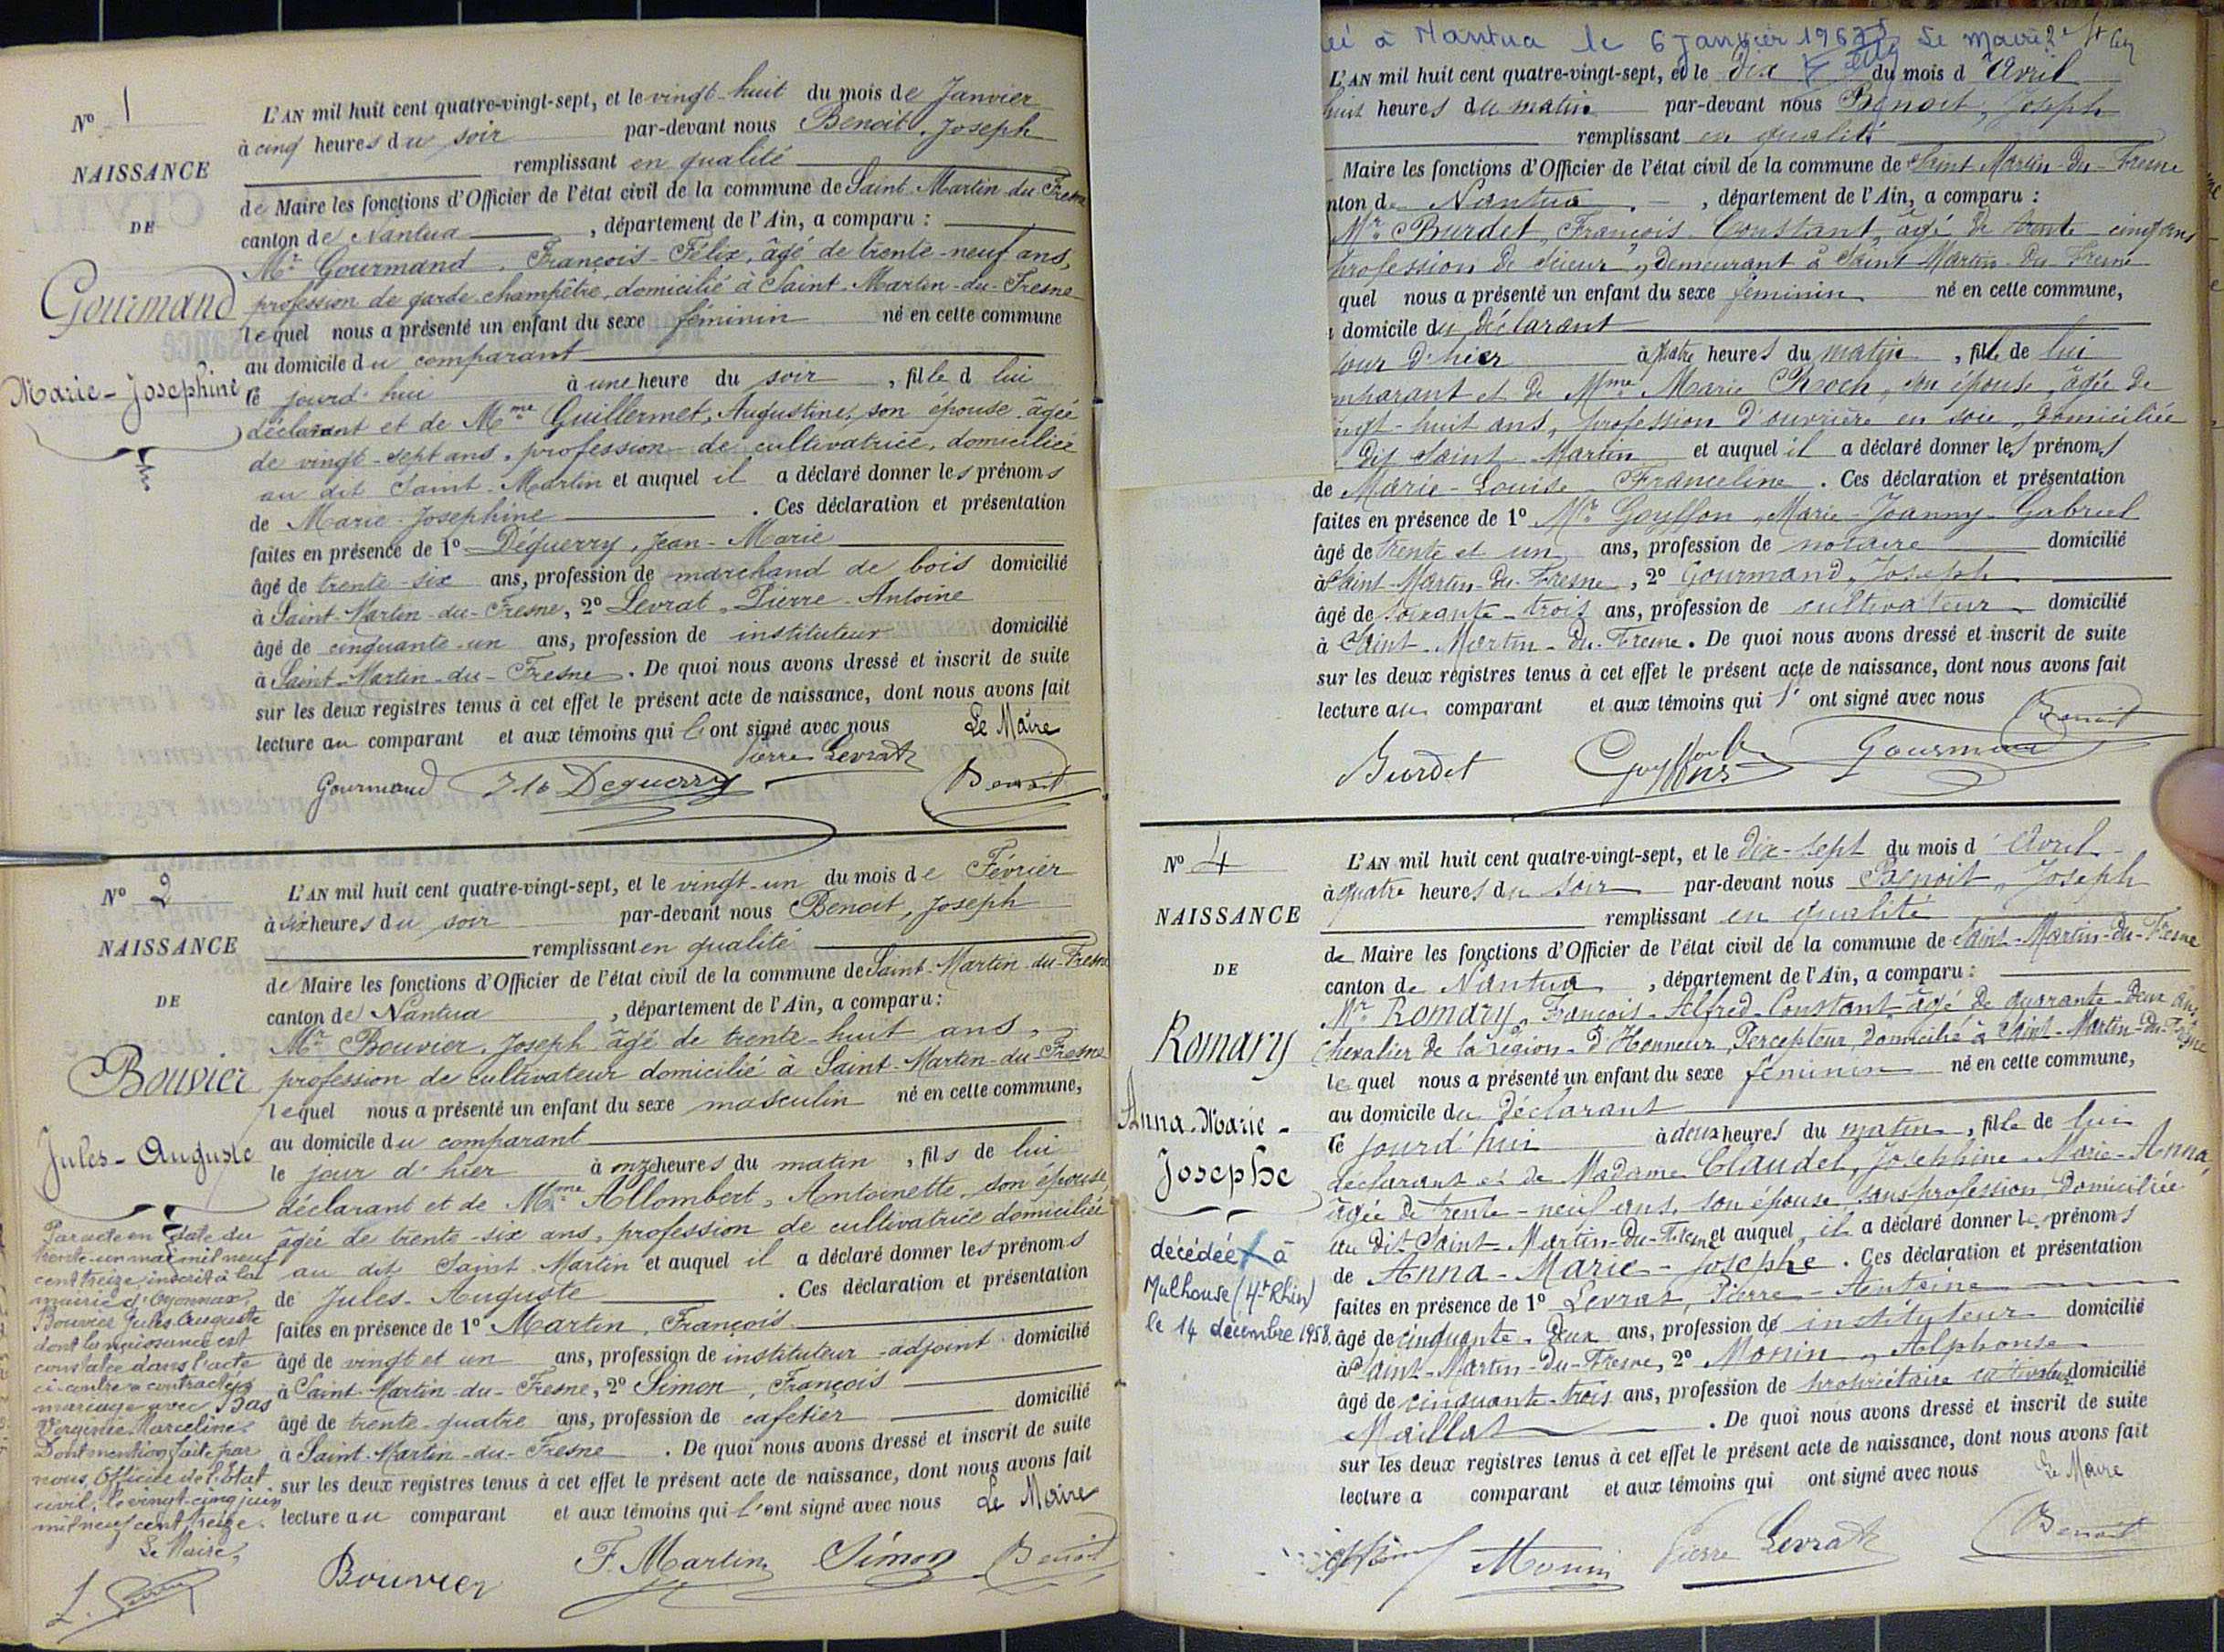 N° 1
NAISSANCE
DE
Gourmand
Marie-Josephine
L'AN mil huit cent quatre-vingt-sept, et le vingt-huit du mois de Janvier
à cinq heures du soir par-devant nous Benoit, Joseph
remplissant en qualité
de Maire les fonctions d'Officier de l'état civil de la commune de Saint-Martin-du-Fresne
canton de Nantua, département de l'Ain, a comparu :
Mr Gourmand, François-Félix, âgé de trente-neuf ans,
profession de garde-champêtre, domicilié à Saint-Martin-du-Fresne
lequel nous a présenté un enfant du sexe féminin né en cette commune
au domicile du comparant
le jourd'hui à une heure du soir, fille d lui
déclarant et de Mme Guillermet, Augustine, son épouse âgée
de vingt-sept ans, profession de cultivatrice, domiciliée
au dit Saint-Martin et auquel il a déclaré donner les prénoms
de Marie-Josephine. Ces déclaration et présentation
faites en présence de 1° Déguerry, Jean-Marie
âgé de trente-six ans, profession de marchand de bois domicilié
à Saint-Martin-du-Fresne, 2° Levrat, Pierre-Antoine
âgé de cinquante-un ans, profession de instituteur domicilié
à Saint-Martin-du-Fresne. De quoi nous avons dressé et inscrit de suite
sur les deux registres tenus à cet effet le présent acte de naissance, dont nous avons fait
lecture au comparant et aux témoins qui l'ont signé avec nous Le Maire
Pierre Levrat
Gourmand Deguerry Benoit
N° 2
NAISSANCE
DE
Bouvier
Jules-Auguste
Par acte en date du
trente-un mai mil neuf
cent treize inscrit à la
mairie d'Oyonnax,
Bouvier Jules Auguste
dont la naissance est
constatée dans l'acte
ci-contre a contracté
mariage avec Bas
Virginie Marceline.
Dont mention faite par
nous, Officier de l'Etat
civil, le vingt-cinq juin
mil neuf cent treize.
Le Maire,
L'AN mil huit cent quatre-vingt-sept, et le vingt-un du mois de Février
à six heures du soir par-devant nous Benoit, Joseph
remplissant en qualité
de Maire les fonctions d'Officier de l'état civil de la commune de Saint-Martin-du-Fresne
canton de Nantua, département de l'Ain, a comparu :
Mr Bouvier, Joseph âgé de trente-huit ans,
profession de cultivateur domicilié à Saint-Martin-du-Fresne
lequel nous a présenté un enfant du sexe masculin né en cette commune,
au domicile du comparant
le jour d'hier à onze heures du matin, fils de lui
déclarant et de Mme Allombert, Antoinette, son épouse
âgée de trente-six ans, profession de cultivatrice domiciliée
au dit Saint-Martin et auquel il a déclaré donner les prénoms
de Jules-Auguste. Ces déclaration et présentation
faites en présence de 1° Martin, François
âgé de vingt et un ans, profession de instituteur-adjoint domicilié
à Saint-Martin-du-Fresne, 2° Simon, François
âgé de trente-quatre ans, profession de cafetier domicilié
à Saint-Martin-du-Fresne. De quoi nous avons dressé et inscrit de suite
sur les deux registres tenus à cet effet le présent acte de naissance, dont nous avons fait
lecture au comparant et aux témoins qui l'ont signé avec nous Le Maire
Bouvier F. Martin Simon Benoit
à Nantua le 6 Janvier 196 Le Maire
L'AN mil huit cent quatre-vingt-sept, et le dix du mois d'Avril
huit heures du matin par-devant nous Benoit, Joseph
remplissant en qualité
Maire les fonctions d'Officier de l'état civil de la commune de Saint-Martin-du-Fresne
nton de Nantua, département de l'Ain, a comparu :
Mr Burdet, François-Constant, âgé de trente-cinq ans
profession de scieur, demeurant à Saint-Martin-du-Fresne
quel nous a présenté un enfant du sexe féminin né en cette commune,
domicile du déclarant
jour d'hier à quatre heures du matin, fille de lui
mparant et de Mme Marie Roch, son épouse, âgée de
ingt-huit ans, profession d'ouvrière en soie, domiciliée
dit Saint-Martin et auquel il a déclaré donner les prénoms
de Marie-Louise-Franceline. Ces déclaration et présentation
faites en présence de 1° Mr Goyffon, Marie-Joanny-Gabriel
âgé de trente et un ans, profession de notaire domicilié
à Saint-Martin-du-Fresne, 2° Gourmand, Joseph
âgé de soixante-trois ans, profession de cultivateur domicilié
à Saint-Martin-du-Fresne. De quoi nous avons dressé et inscrit de suite
sur les deux registres tenus à cet effet le présent acte de naissance, dont nous avons fait
lecture au comparant et aux témoins qui l'ont signé avec nous
Benoit
Burdet Goyffon Gourmand
N° 4
NAISSANCE
DE
Romary
Anna-Marie-
Josephe
décédée à
Mulhouse (Ht Rhin)
le 14 décembre 1958.
L'AN mil huit cent quatre-vingt-sept, et le dix-sept du mois d'Avril
à quatre heures du soir par-devant nous Benoit, Joseph
remplissant en qualité
de Maire les fonctions d'Officier de l'état civil de la commune de Saint-Martin-du-Fresne
canton de Nantua, département de l'Ain, a comparu :
Mr Romary, François-Alfred-Constant âgé de quarante-deux ans,
Chevalier de la Légion-d'Honneur, Percepteur, domicilié à Saint-Martin-du-Fresne
lequel nous a présenté un enfant du sexe féminin né en cette commune,
au domicile du déclarant
le jourd'hui à deux heures du matin, fille de lui
déclarant et de Madame Claudel, Joséphine-Marie-Anna,
âgée de trente-neuf ans, son épouse, sans profession, domiciliée
au dit Saint-Martin-du-Fresne et auquel il a déclaré donner les prénoms
de Anna-Marie-Josephe. Ces déclaration et présentation
faites en présence de 1° Levrat, Pierre-Antoine
âgé de cinquante-deux ans, profession de instituteur domicilié
à Saint-Martin-du-Fresne, 2° Monin, Alphonse
âgé de cinquante-trois ans, profession de propriétaire cultivateur domicilié
Maillat. De quoi nous avons dressé et inscrit de suite
sur les deux registres tenus à cet effet le présent acte de naissance, dont nous avons fait
lecture a comparant et aux témoins qui ont signé avec nous Le Maire
Monin Pierre Levrat Benoit